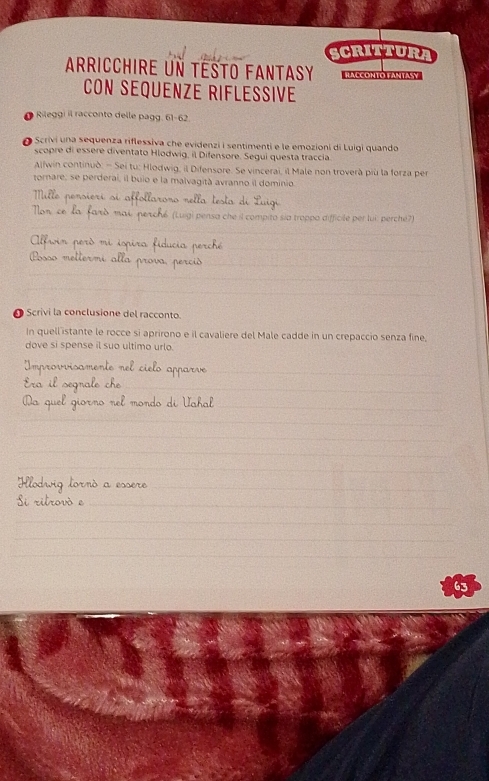 sul quaderno
SCRITTURA
RACCONTO FANTASY
ARRICCHIRE UN TESTO FANTASY
CON SEQUENZE RIFLESSIVE
1 Rileggi il racconto delle pagg. 61-62.
2 Scrivi una sequenza riflessiva che evidenzi i sentimenti e le emozioni di Luigi quando
scopre di essere diventato Hlodwig, il Difensore. Segui questa traccia.
Alfwin continuò: – Sei tu: Hlodwig, il Difensore. Se vincerai, il Male non troverà più la forza per
tornare; se perderai, il buio e la malvagità avranno il dominio.
Mille pensieri si affollarono nella testa di Luigi.
Non ce la farò mai perché (Luigi pensa che il compito sia troppo difficile per lui: perché?)
Alfwin però mi ispira fiducia perché
Posso mettermi alla prova, perciò
3 Scrivi la conclusione del racconto.
In quell'istante le rocce si aprirono e il cavaliere del Male cadde in un crepaccio senza fine,
dove si spense il suo ultimo urlo.
Improvvisamente nel cielo apparve
Era il segnale che
Da quel giorno nel mondo di Uahal
Hlodwig tornò a essere
Si ritrovò e
63